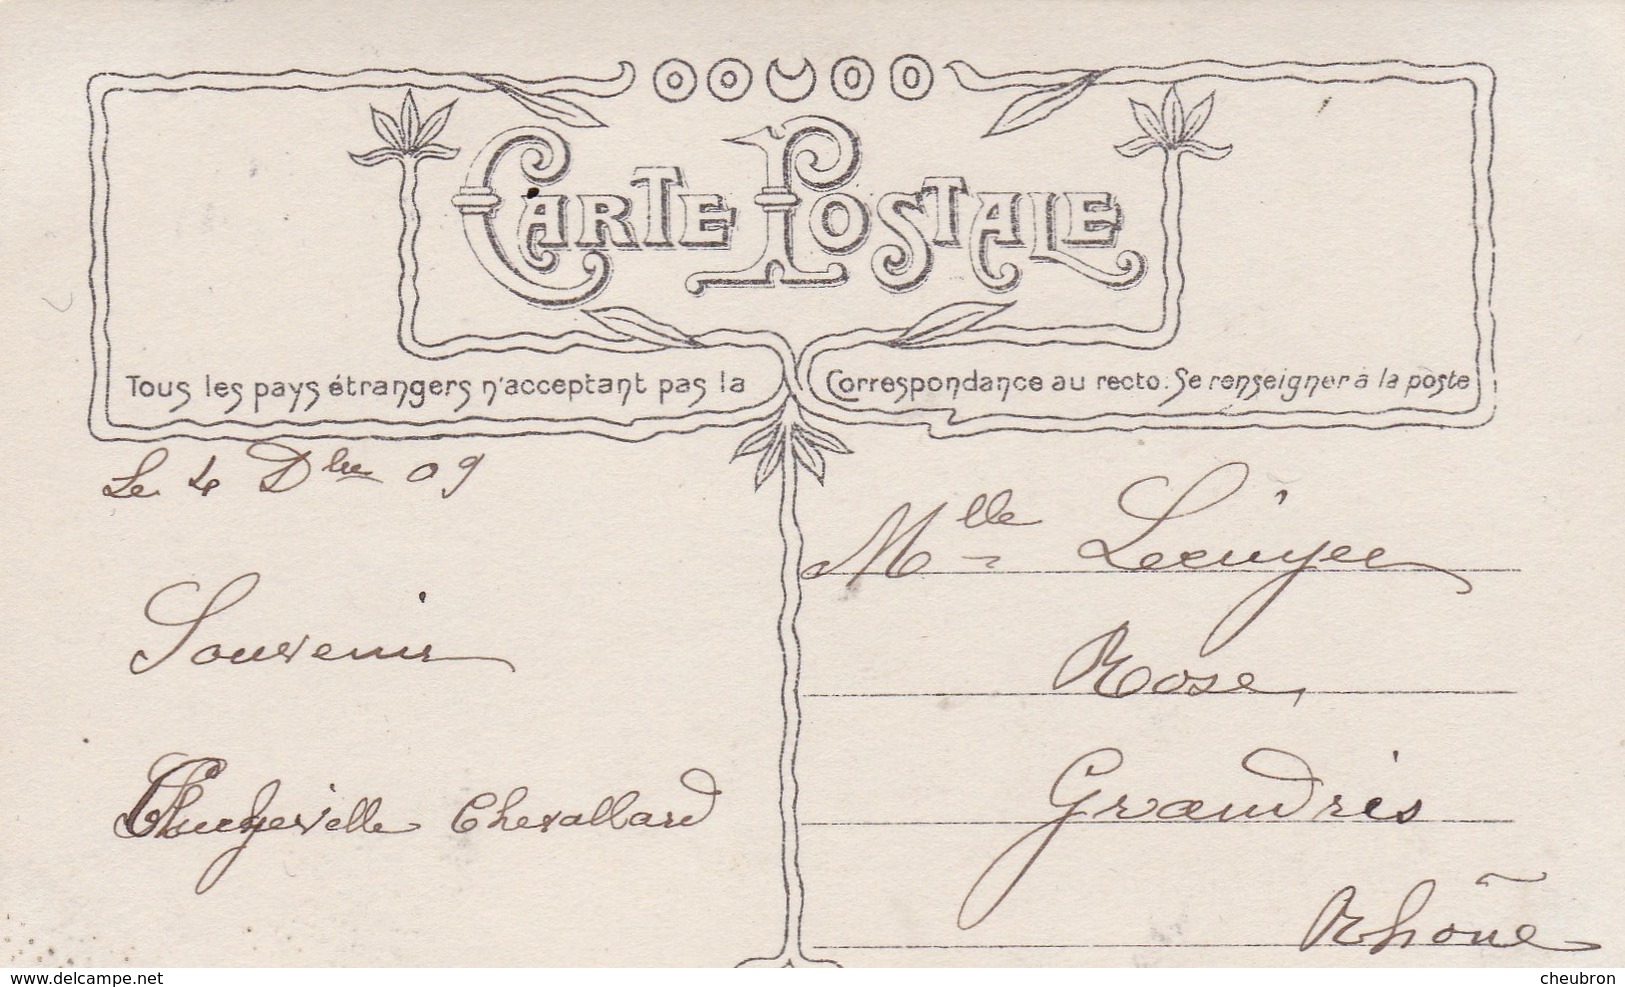 CARTE POSTALE
Tous les pays étrangers n'acceptant pas la Correspondance au recto. Se renseigner à la poste
Le 4 Dbre 09
Souvenir
Chevallard
Mlle Lécuyer
Rose,
Grandris
Rhône
www.delcampe.net
cheubron